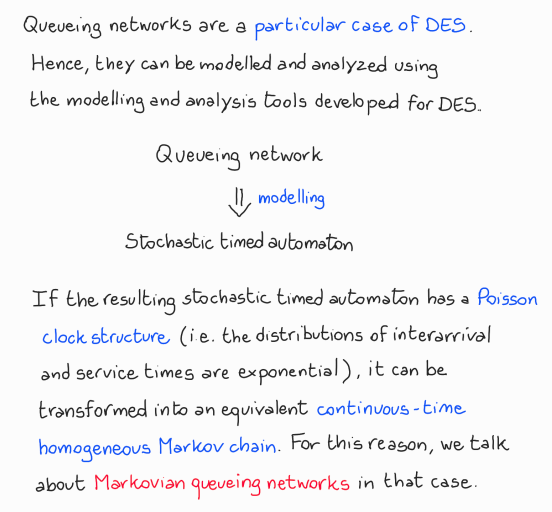 Queueing networks are a particular case of DES.
Hence, they can be modelled and analyzed using
the modelling and analysis tools developed for DES.
Queueing network
⇓ modelling
Stochastic timed automaton
If the resulting stochastic timed automaton has a Poisson
clock structure (i.e. the distributions of interarrival
and service times are exponential), it can be
transformed into an equivalent continuous-time
homogeneous Markov chain. For this reason, we talk
about Markovian queueing networks in that case.